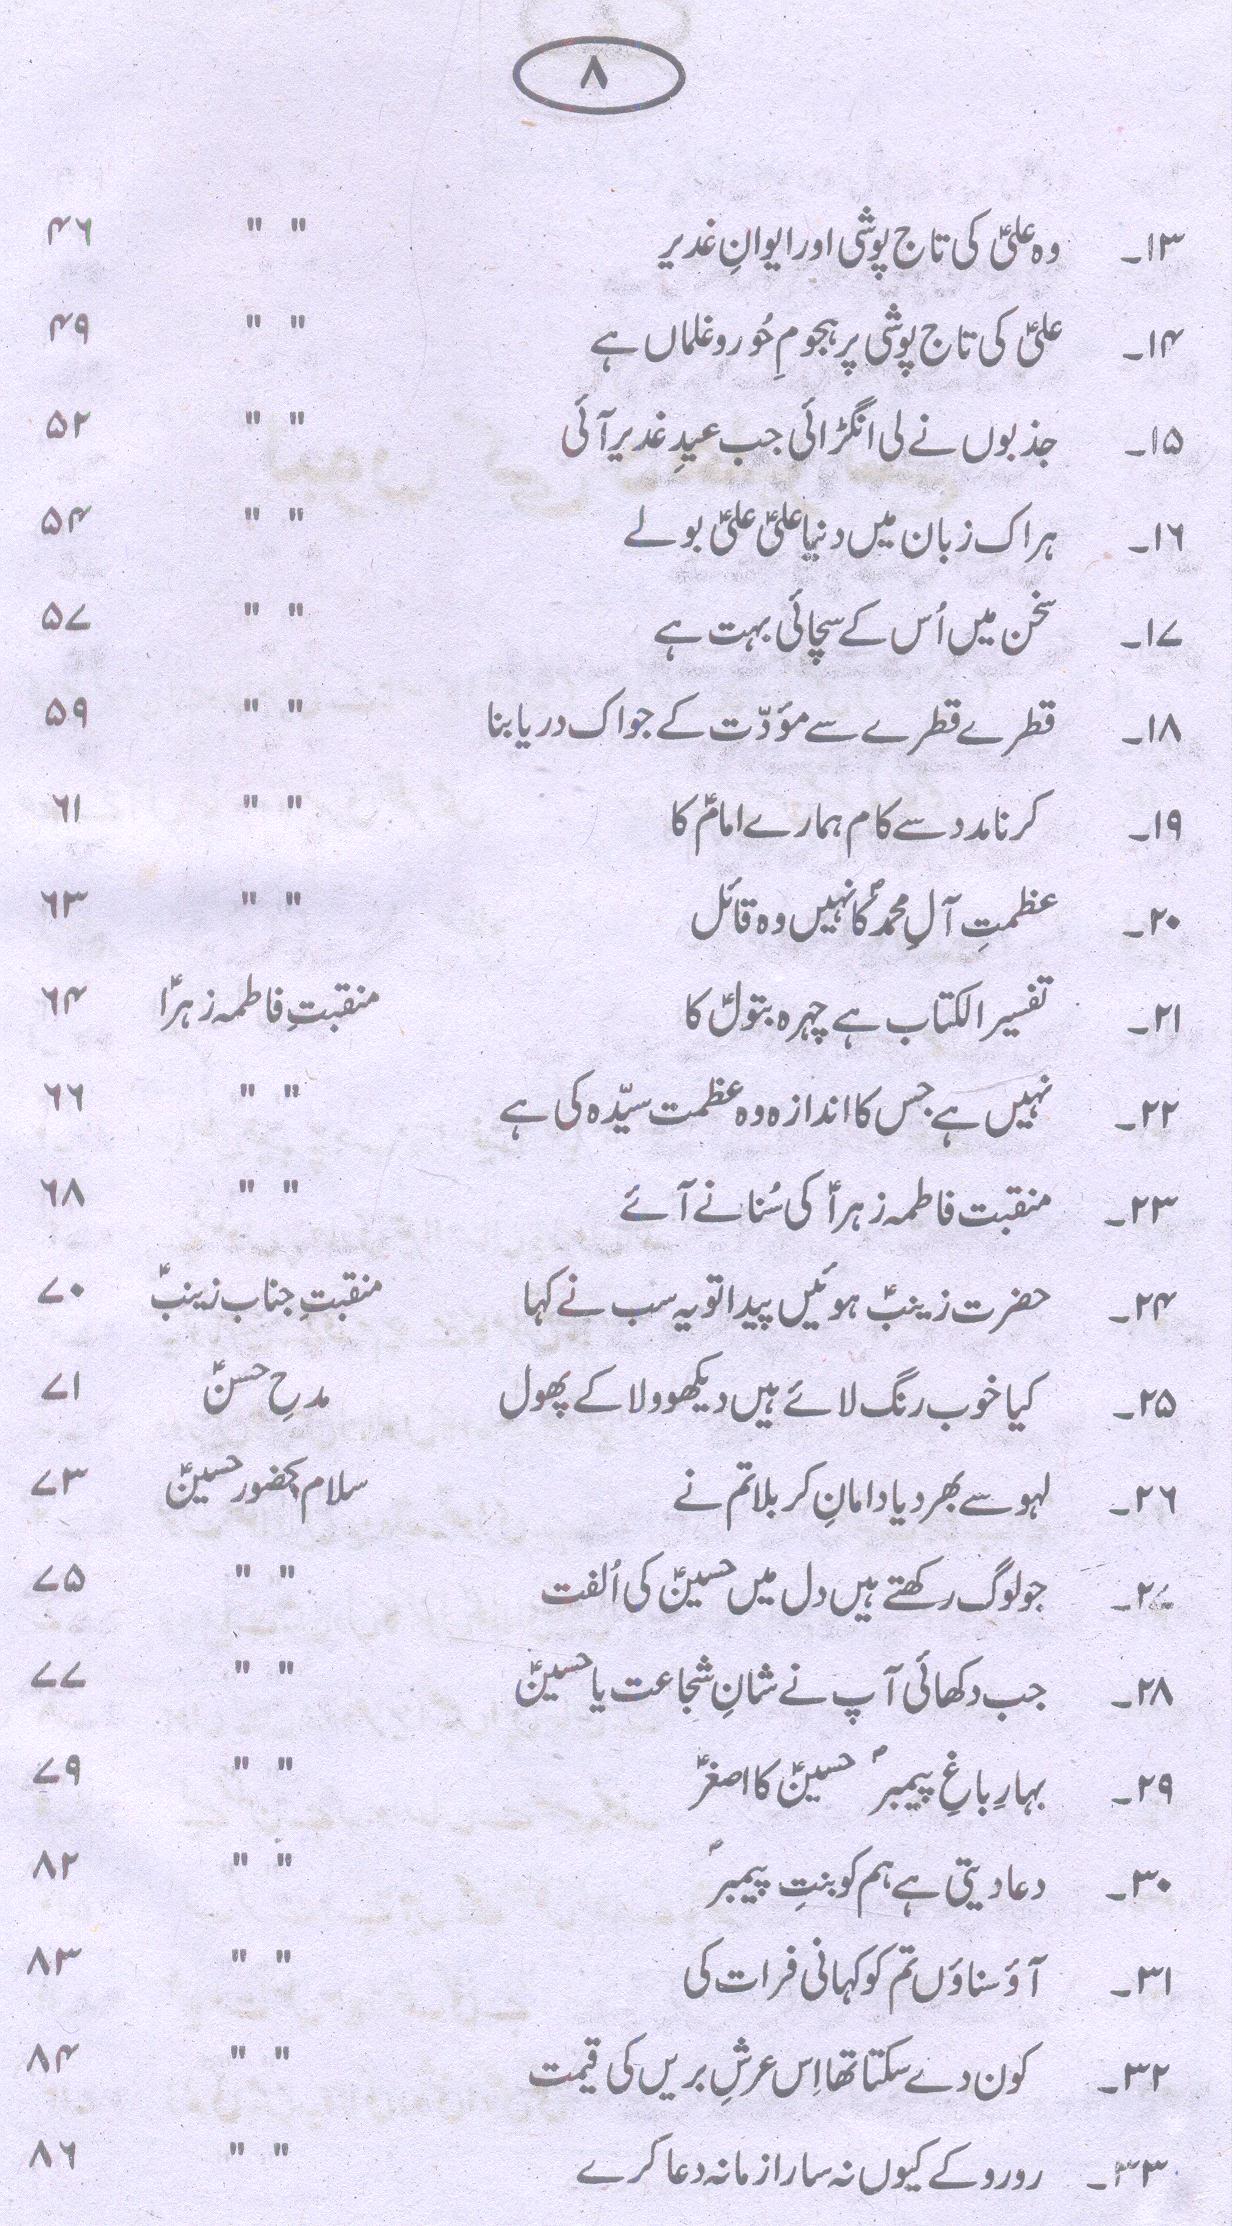 ۸
۱۳۔ وہ علیؑ کی تاج پوشی اور ایوانِ غدیر " " ۴۶
۱۴۔ علیؑ کی تاج پوشی پر ہجومِ حُور و غلماں ہے " " ۴۹
۱۵۔ جذبوں نے لی انگڑائی جب عیدِ غدیر آئی " " ۵۲
۱۶۔ ہر اک زبان میں دنیا علیؑ علیؑ بولے " " ۵۴
۱۷۔ سخن میں اُس کے سچائی بہت ہے " " ۵۷
۱۸۔ قطرے قطرے سے مؤدّت کے جو اک دریا بنا " " ۵۹
۱۹۔ کرنا مدد سے کام ہمارے امامؑ کا " " ۶۱
۲۰۔ عظمتِ آلِ محمدؐ کا نہیں وہ قائل " " ۶۳
۲۱۔ تفسیر الکتاب ہے چہرہ بتولؑ کا منقبتِ فاطمہ زہراؑ ۶۴
۲۲۔ نہیں ہے جس کا اندازہ وہ عظمت سیّدہ کی ہے " " ۶۶
۲۳۔ منقبت فاطمہ زہراؑ کی سُنانے آئے " " ۶۸
۲۴۔ حضرت زینبؑ ہوئیں پیدا تو یہ سب نے کہا منقبتِ جناب زینبؑ ۷۰
۲۵۔ کیا خوب رنگ لائے ہیں دیکھو ولا کے پھول مدحِ حسنؑ ۷۱
۲۶۔ لہو سے بھر دیا دامانِ کربلا تم نے سلام بحضور حسینؑ ۷۳
۲۷۔ جو لوگ رکھتے ہیں دل میں حسینؑ کی اُلفت " " ۷۵
۲۸۔ جب دکھائی آپ نے شانِ شجاعت یا حسینؑ " " ۷۷
۲۹۔ بہارِ باغِ پیمبرؐ حسینؑ کا اصغرؑ " " ۷۹
۳۰۔ دعا دیتی ہے ہم کو بنتِ پیمبرؐ " " ۸۲
۳۱۔ آؤ سناؤں تم کو کہانی فرات کی " " ۸۳
۳۲۔ کون دے سکتا تھا اِس عرشِ بریں کی قیمت " " ۸۴
۳۳۔ رو رو کے کیوں نہ سارا زمانہ دعا کرے " " ۸۶